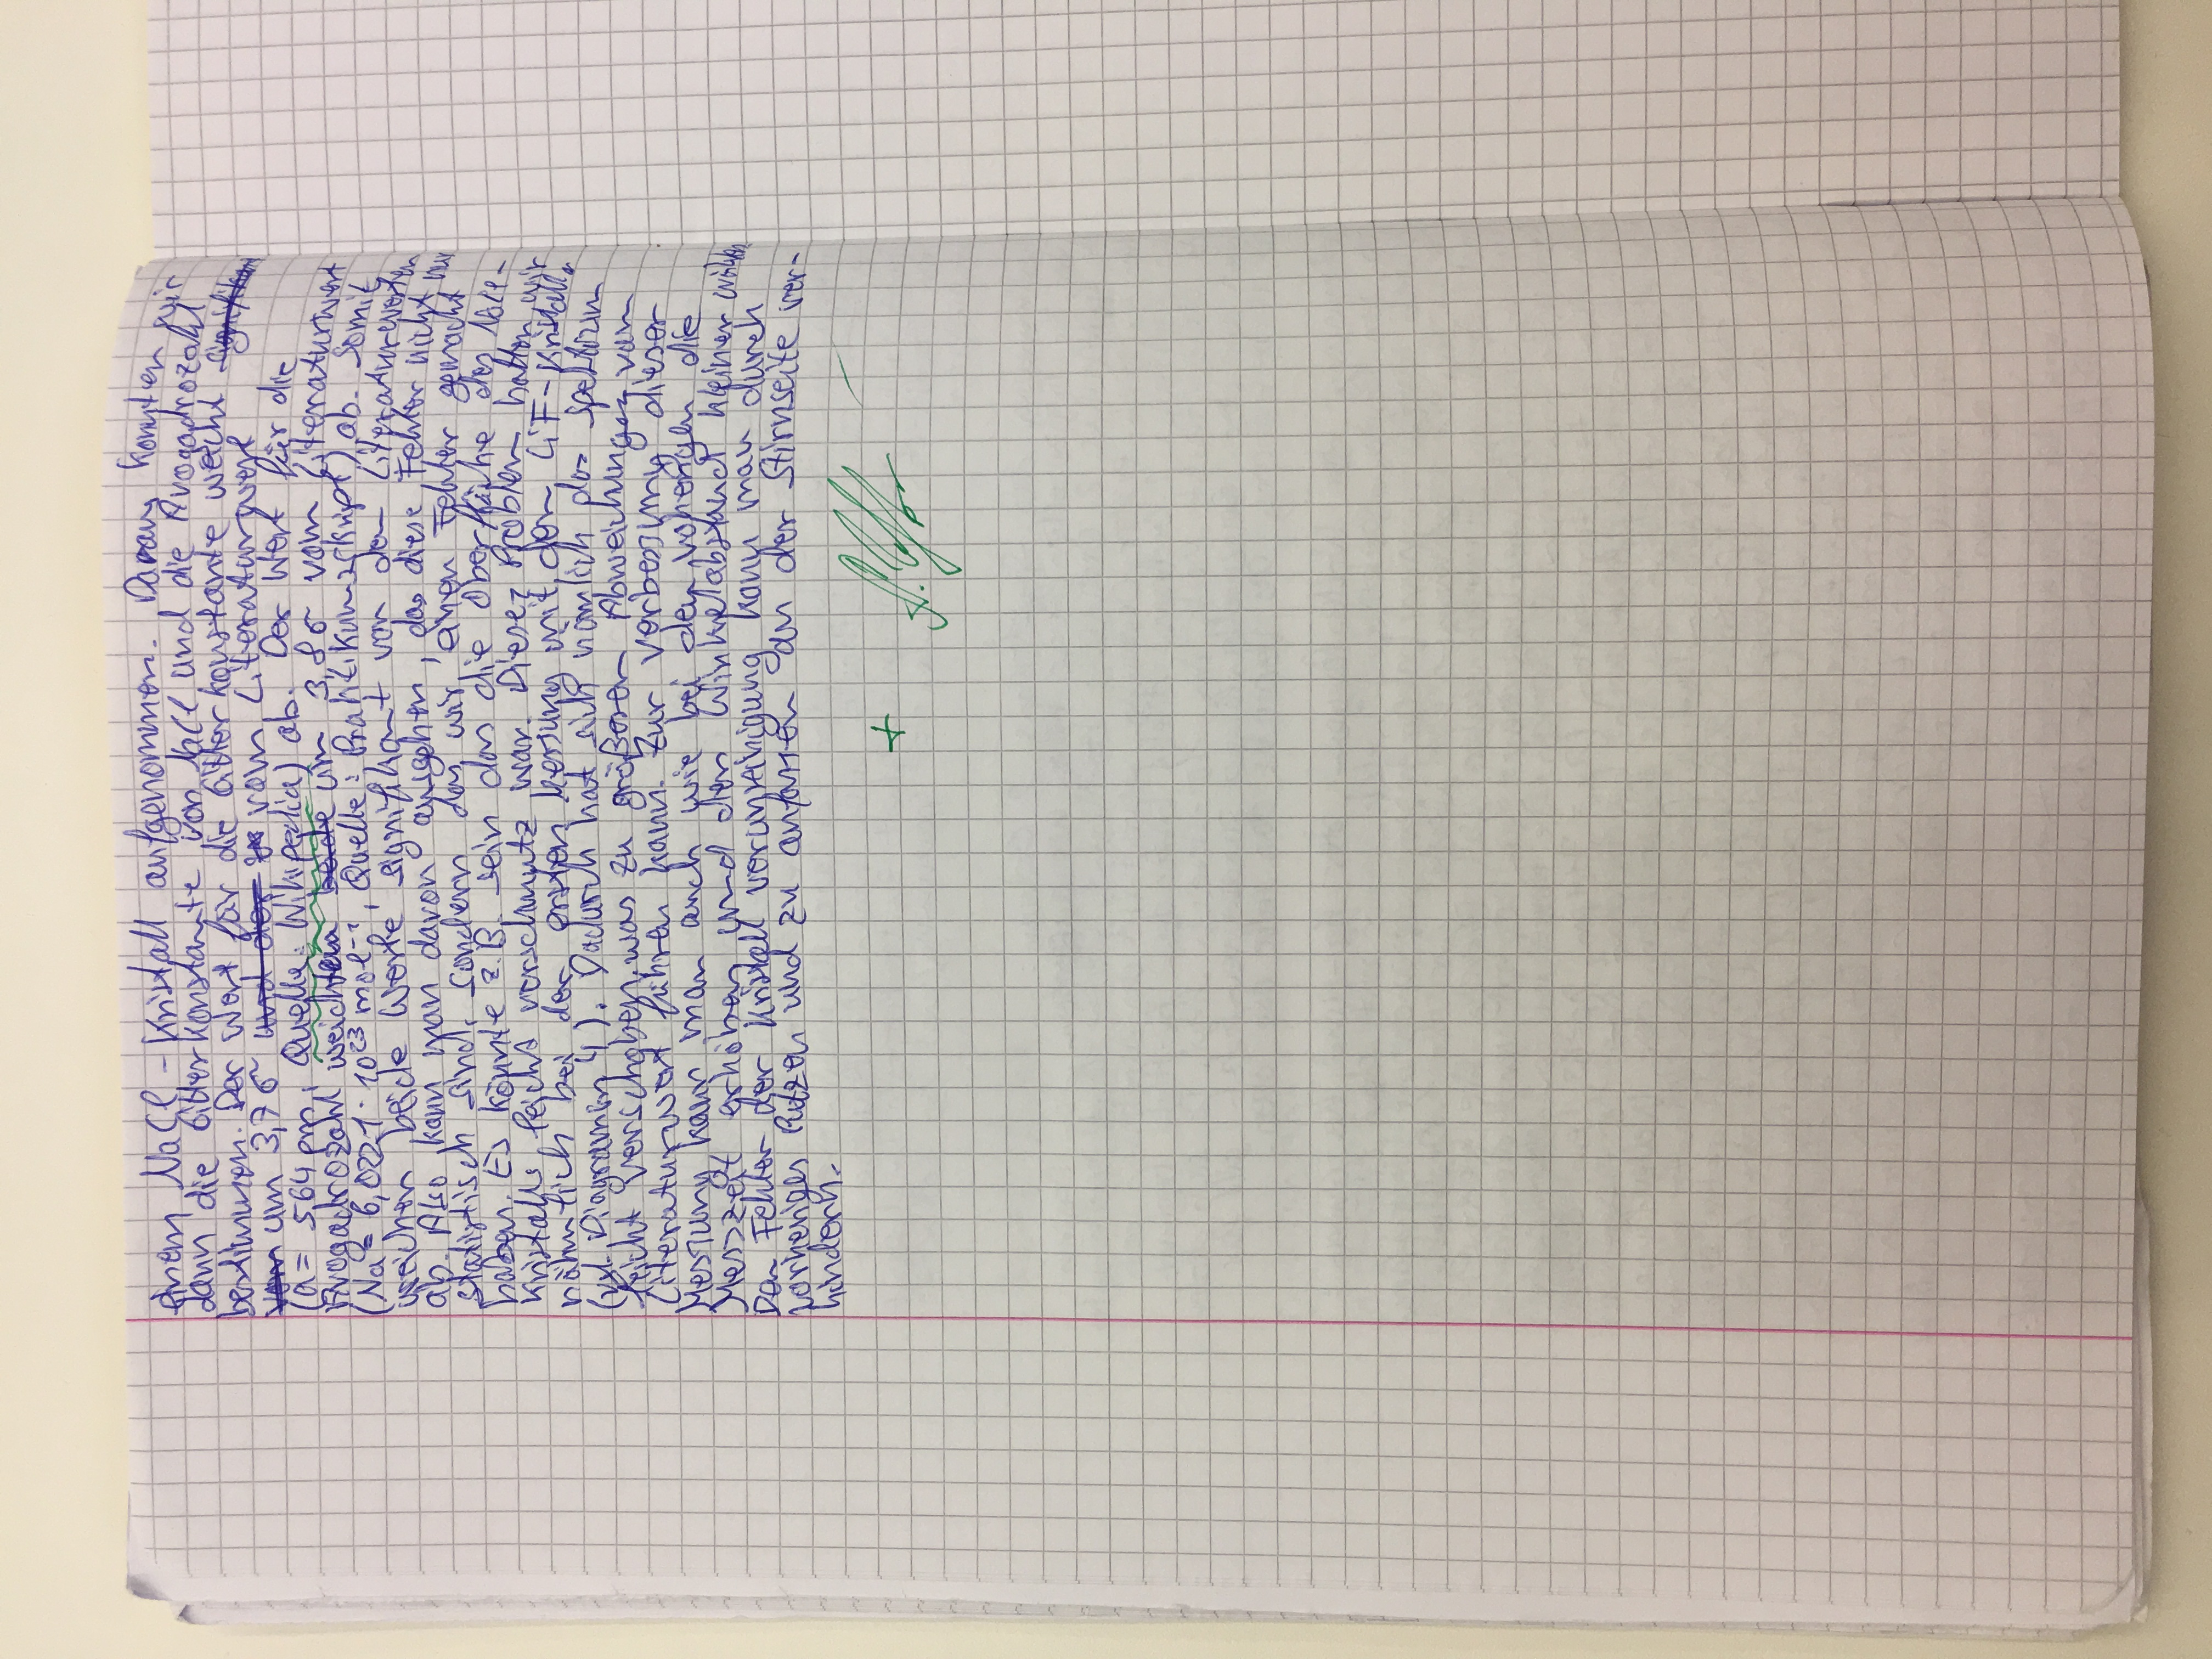 einem NaCl-Kristall aufgenommen. Daraus konnten wir
dann die Gitterkonstante von NaCl und die Avogadrozahl
bestimmen. Der Wert für die Gitterkonstante weicht signifikan
vom um 3,7σ und der vom Literaturwert
(a = 564 pm, Quelle: Wikipedia) ab. Der Wert für die
Avogadrozahl weicht beide um 3,8σ vom Literaturwert
(Na = 6,0221 · 10²³ mol⁻¹, Quelle: Praktikumsskript) ab. Somit
weichen beide Werte signifikant von den Literaturwerten
ab. Also kann man davon ausgehen, das diese Fehler nicht nur
statistisch sind, sondern das wir einen Fehler gemacht
haben. Es könnte z.B. sein das die Oberfläche des NaCl-
Kristalls leicht verschmutz war. Dieses Problem hatten wir
nähmlich bei der ersten Messung mit dem LiF-Kristall
(vgl. Diagramm 4). Dadurch hat sich nämlich das Spektrum
leicht verschoben, was zu größeren Abweichungen vom
Literaturwert führen kann. Zur Verbesserung dieser
Messung kann man auch wie bei den die
Messzeit erhöhen und den Winkelabstand kleiner wählen
Den Fehler der Kristall verunreinigung kann man durch
vorheriges Putzen und zu anfassen an der Stirnseite ver-
hindern.
+